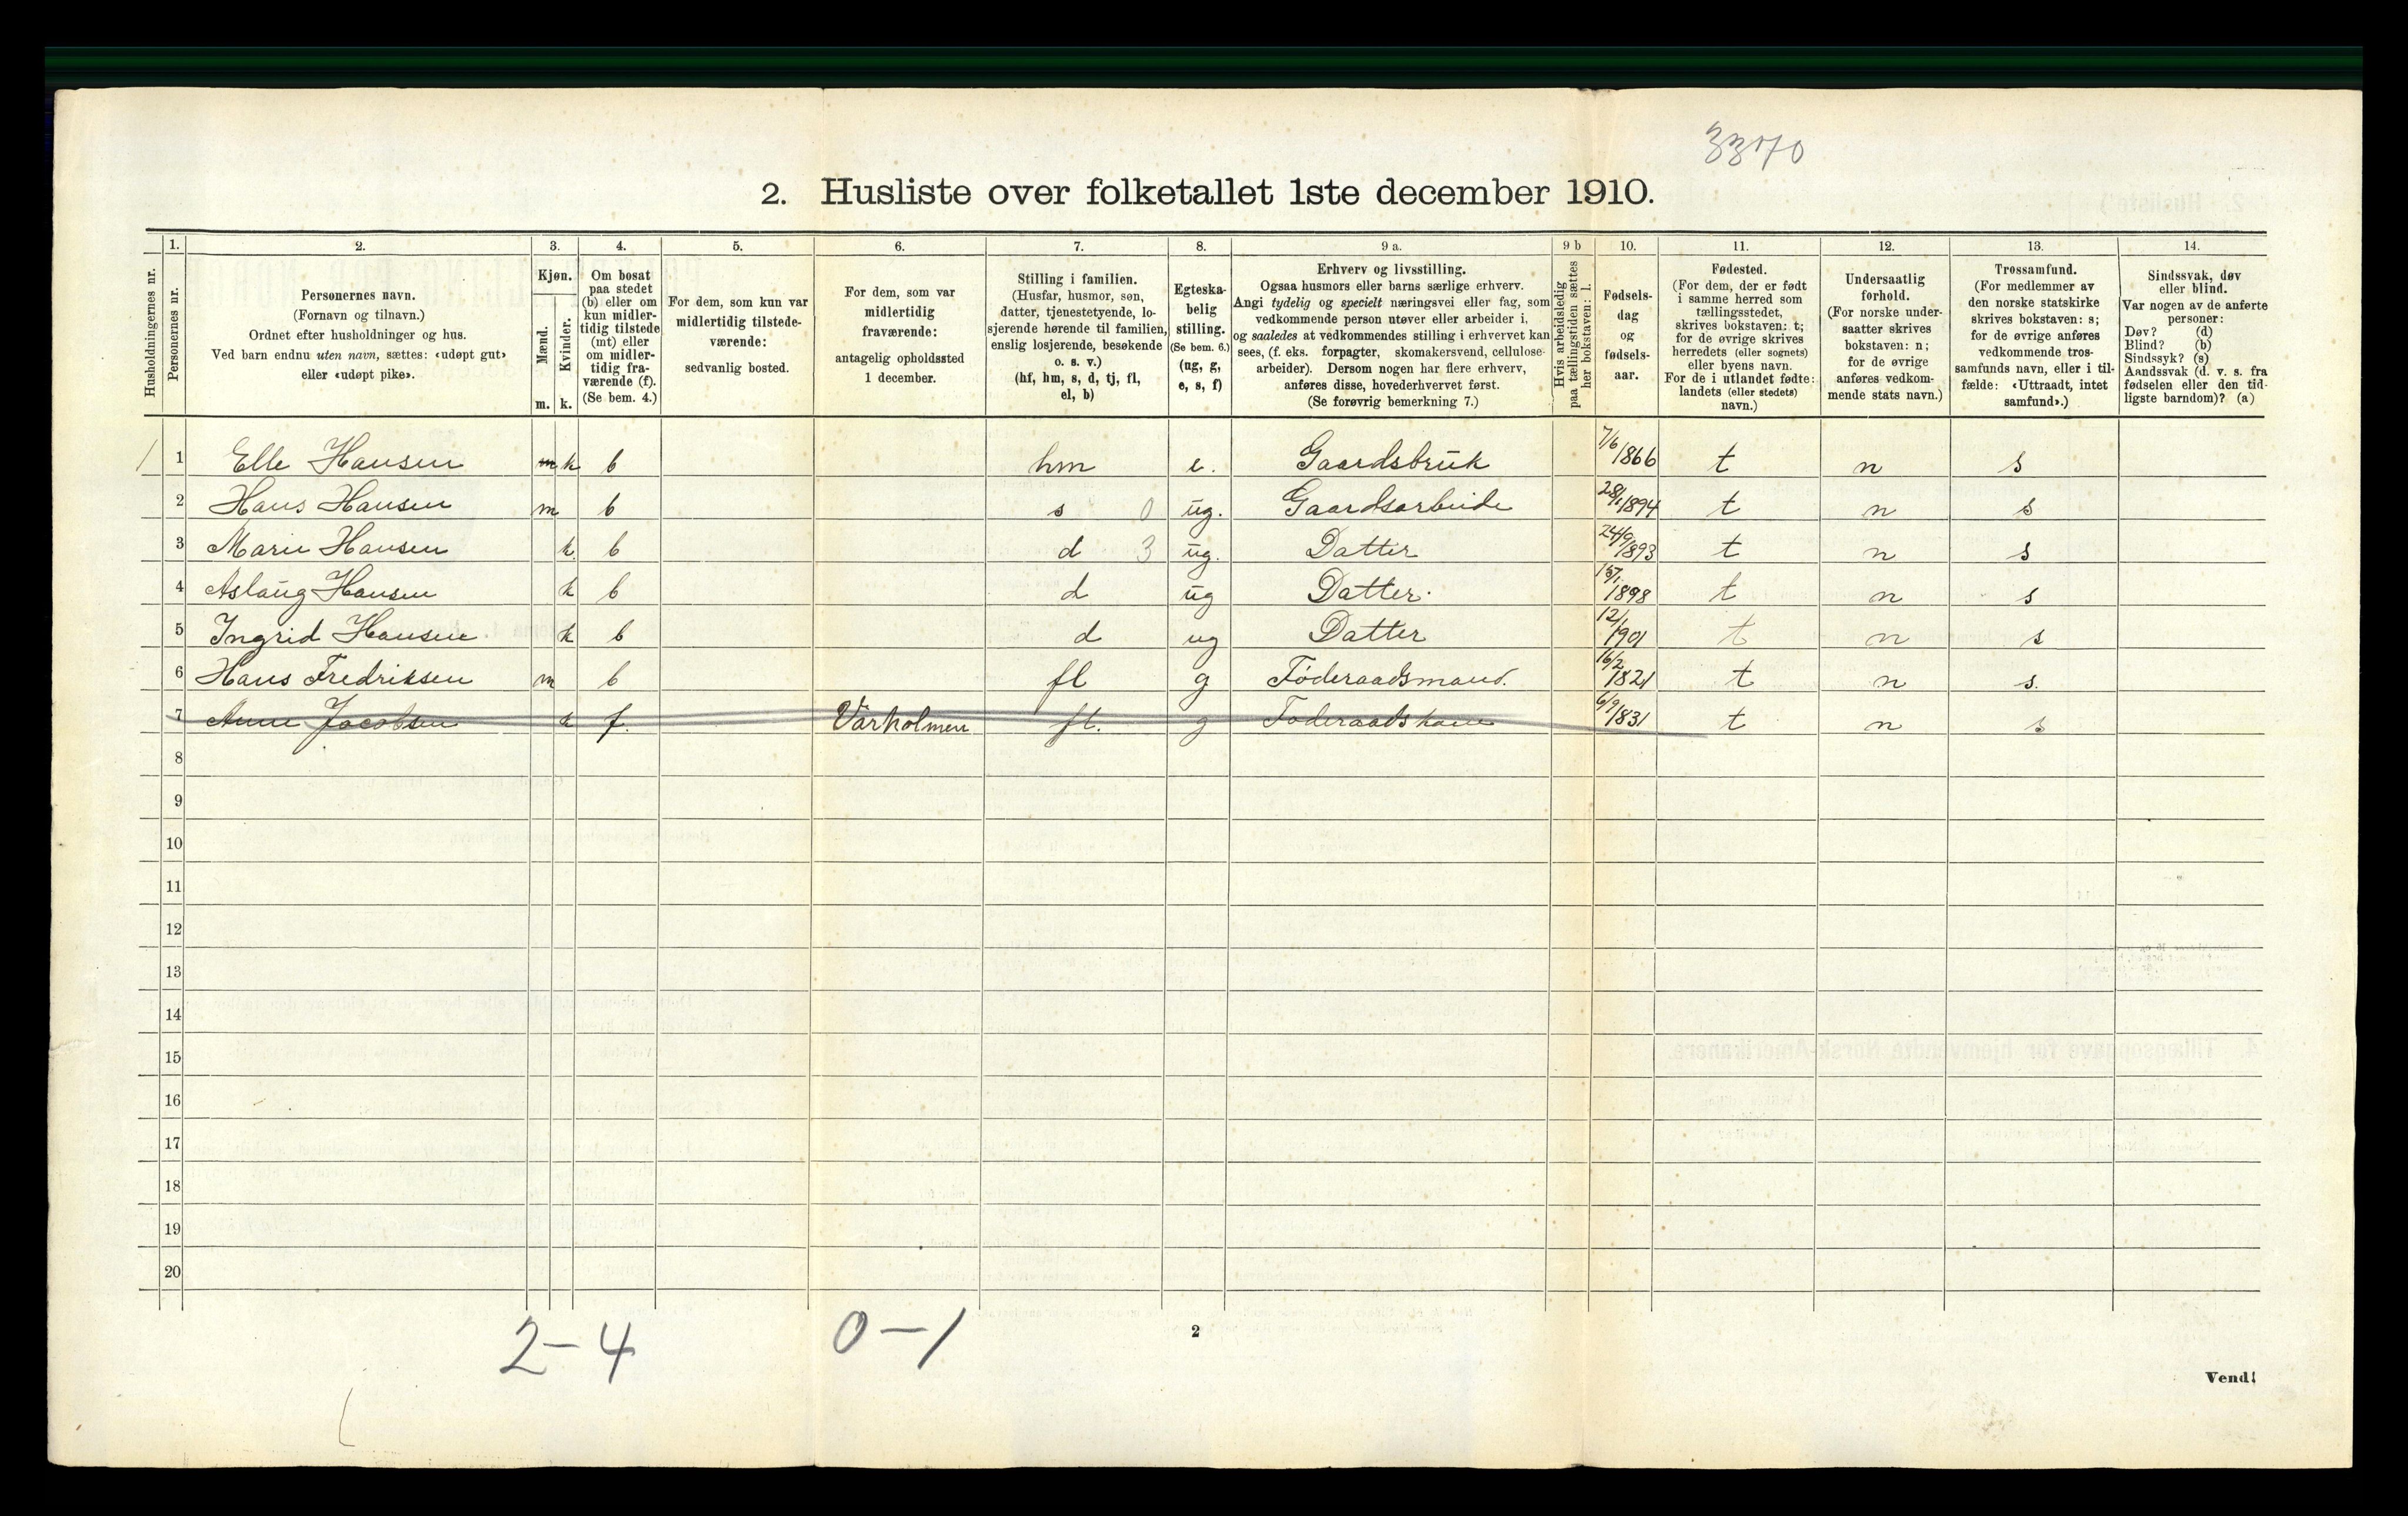 3370
2. Husliste over folketallet 1ste december 1910.
Husholdningernes nr.
1. Personernes nr.
2. Personernes navn.
(Fornavn og tilnavn.)
Ordnet efter husholdninger og hus.
Ved barn endnu uten navn, sættes: «udøpt gut»
eller «udøpt pike».
3. Kjøn.
Mænd. Kvinder.
m. k.
4. Om bosat
paa stedet
(b) eller om
kun midler-
tidig tilstede
(mt) eller
om midler-
tidig fra-
værende (f).
(Se bem. 4.)
5. For dem, som kun var
midlertidig tilstede-
værende:
sedvanlig bosted.
6. For dem, som var
midlertidig
fraværende:
antagelig opholdssted
1 december.
7. Stilling i familien.
(Husfar, husmor, søn,
datter, tjenestetyende, lo-
sjerende hørende til familien,
enslig losjerende, besøkende
o. s. v.)
(hf, hm, s, d, tj, fl,
el, b)
8. Egteska-
belig
stilling.
(Se bem. 6.)
(ug, g,
e, s, f)
9 a. Erhverv og livsstilling.
Ogsaa husmors eller barns særlige erhverv.
Angi tydelig og specielt næringsvei eller fag, som
vedkommende person utøver eller arbeider i,
og saaledes at vedkommendes stilling i erhvervet kan
sees, (f. eks. forpagter, skomakersvend, cellulose-
arbeider). Dersom nogen har flere erhverv,
anføres disse, hovederhvervet først.
(Se forøvrig bemerkning 7.)
9 b Hvis arbeidsledig
paa tællingstiden sættes
her bokstaven: l.
10. Fødsels-
dag
og
fødsels-
aar.
11. Fødested.
(For dem, der er født
i samme herred som
tællingsstedet,
skrives bokstaven: t;
for de øvrige skrives
herredets (eller sognets)
eller byens navn.
For de i utlandet fødte:
landets (eller stedets)
navn.)
12. Undersaatlig
forhold.
(For norske under-
saatter skrives
bokstaven: n;
for de øvrige
anføres vedkom-
mende stats navn.)
13. Trossamfund.
(For medlemmer av
den norske statskirke
skrives bokstaven: s;
for de øvrige anføres
vedkommende tros-
samfunds navn, eller i til-
fælde: «Uttraadt, intet
samfund».)
14. Sindssvak, døv
eller blind.
Var nogen av de anførte
personer:
Døv? (d)
Blind? (b)
Sindssyk? (s)
Aandssvak (d. v. s. fra
fødselen eller den tid-
ligste barndom)? (a)
1 1 Elle Hansen m k b hm e. Gaardsbruk 7/6 1866 t n s
2 Hans Hansen m b s 0 ug. Gaardsarbeide 28/1 1894 t n s
3 Marie Hansen k. b d 3 ug. Datter 24/9 1893 t n s
4 Aslaug Hansen k b d ug Datter. 15/1 1898 t n s
5 Ingrid Hansen k b d ug Datter 12/1 1901 t n s
6 Hans Fredriksen m b fl g Føderaadsmand. 16/2 1821 t n s.
7 Anne Jacobsen k f. Varholmen fl. g Føderaadskone 6/9 1831 t n s
8
9
10
11
12
13
14
15
16
17
18
19
20
2-4 0-1
2
Vend!